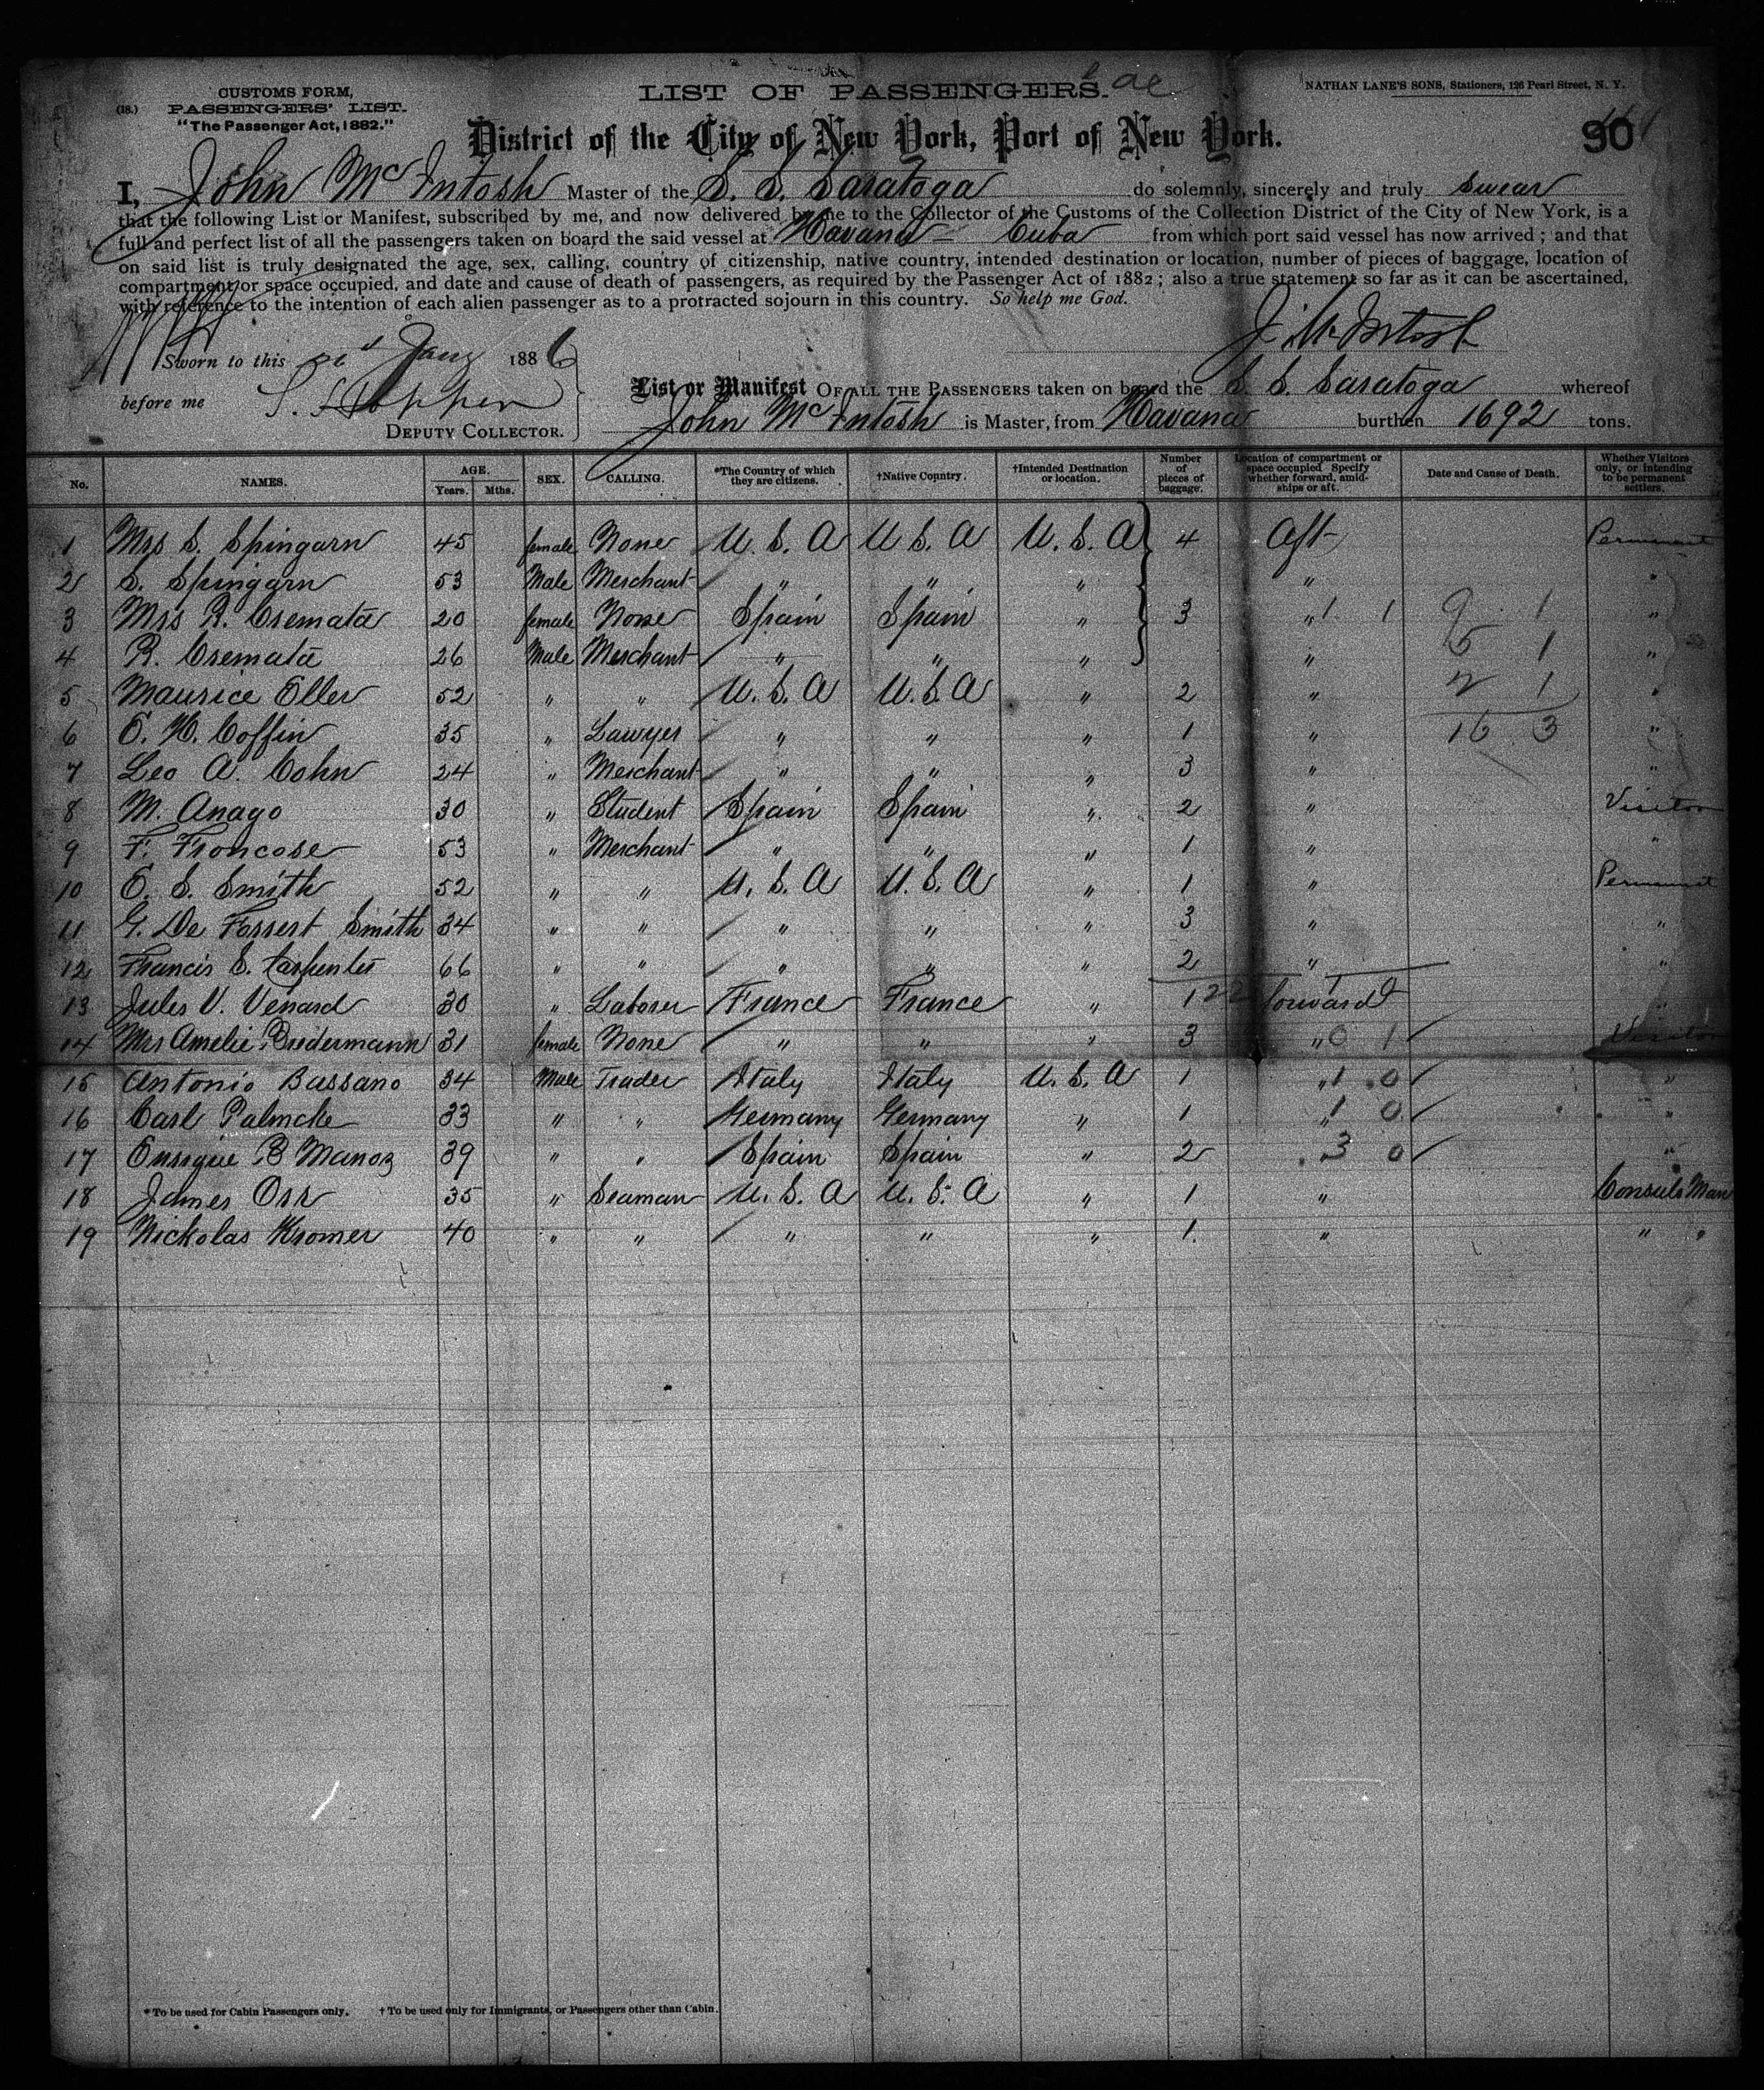 CUSTOMS FORM,
(18.) PASSENGERS' LIST.
"The Passenger Act, 1882."
LIST OF PASSENGERS.
NATHAN LANE'S SONS, Stationers, 126 Pearl Street, N. Y.
District of the City of New York, Port of New York.
90
I, John McIntosh Master of the S. S. Saratoga do solemnly, sincerely and truly swear
that the following List or Manifest, subscribed by me, and now delivered by me to the Collector of the Customs of the Collection District of the City of New York, is a
full and perfect list of all the passengers taken on board the said vessel at Havana - Cuba from which port said vessel has now arrived; and that
on said list is truly designated the age, sex, calling, country of citizenship, native country, intended destination or location, number of pieces of baggage, location of
compartment or space occupied, and date and cause of death of passengers, as required by the Passenger Act of 1882; also a true statement so far as it can be ascertained,
with reference to the intention of each alien passenger as to a protracted sojourn in this country. So help me God.
J. McIntosh
Sworn to this Jany 1886
before me
DEPUTY COLLECTOR.
List or Manifest OF ALL THE PASSENGERS taken on board the S. S. Saratoga whereof
John McIntosh is Master, from Havana burthen 1692 tons.
No. NAMES. AGE. Years. Mths. SEX. CALLING. *The Country of which they are citizens. †Native Country. †Intended Destination or location. Number of pieces of baggage. Location of compartment or space occupied Specify whether forward, amidships or aft. Date and Cause of Death. Whether Visitors only, or intending to be permanent settlers.
1 Mrs S. Spingarn 45 female None U. S. A U S. A U. S. A 4 Aft Permanent
2 S. Spingarn 53 Male Merchant " " " " "
3 Mrs R. Cremata 20 female None Spain Spain " 3 " 1 1 9 1 "
4 R. Cremata 26 Male Merchant " " " " 5 1 "
5 Maurice Eller 52 " " U. S. A U. S A " 2 " 2 1 "
6 E. H. Coffin 35 " Lawyer " " " 1 " 16 3 "
7 Leo A. Cohn 24 " Merchant " " " 3 " "
8 M. Anago 30 " Student Spain Spain " 2 " Visitor
9 F. Froncose 53 " Merchant " " " 1 " "
10 E. S. Smith 52 " " U. S. A U. S. A " 1 " Permanent
11 G. De Forrest Smith 34 " " " " " 3 " "
12 Francis S. Carpenter 66 " " " " " 2 " "
13 Jules V. Venard 30 " Laborer France France " 1 22 forward "
14 Mrs Amelie Bredermann 31 female None " " " 3 " 0 1 Visitor
15 Antonio Bassano 34 Male Trader Italy Italy U. S. A 1 " 1 0 "
16 Carl Palmcke 33 " " Germany Germany " 1 " 1 0 "
17 Enrique B Manoz 39 " " Spain Spain " 2 3 0 "
18 James Orr 35 " Seaman U. S. A U. S. A " 1 " Consuls Man
19 Nickolas Kromer 40 " " " " " 1. " " "
* To be used for Cabin Passengers only. † To be used only for Immigrants, or Passengers other than Cabin.